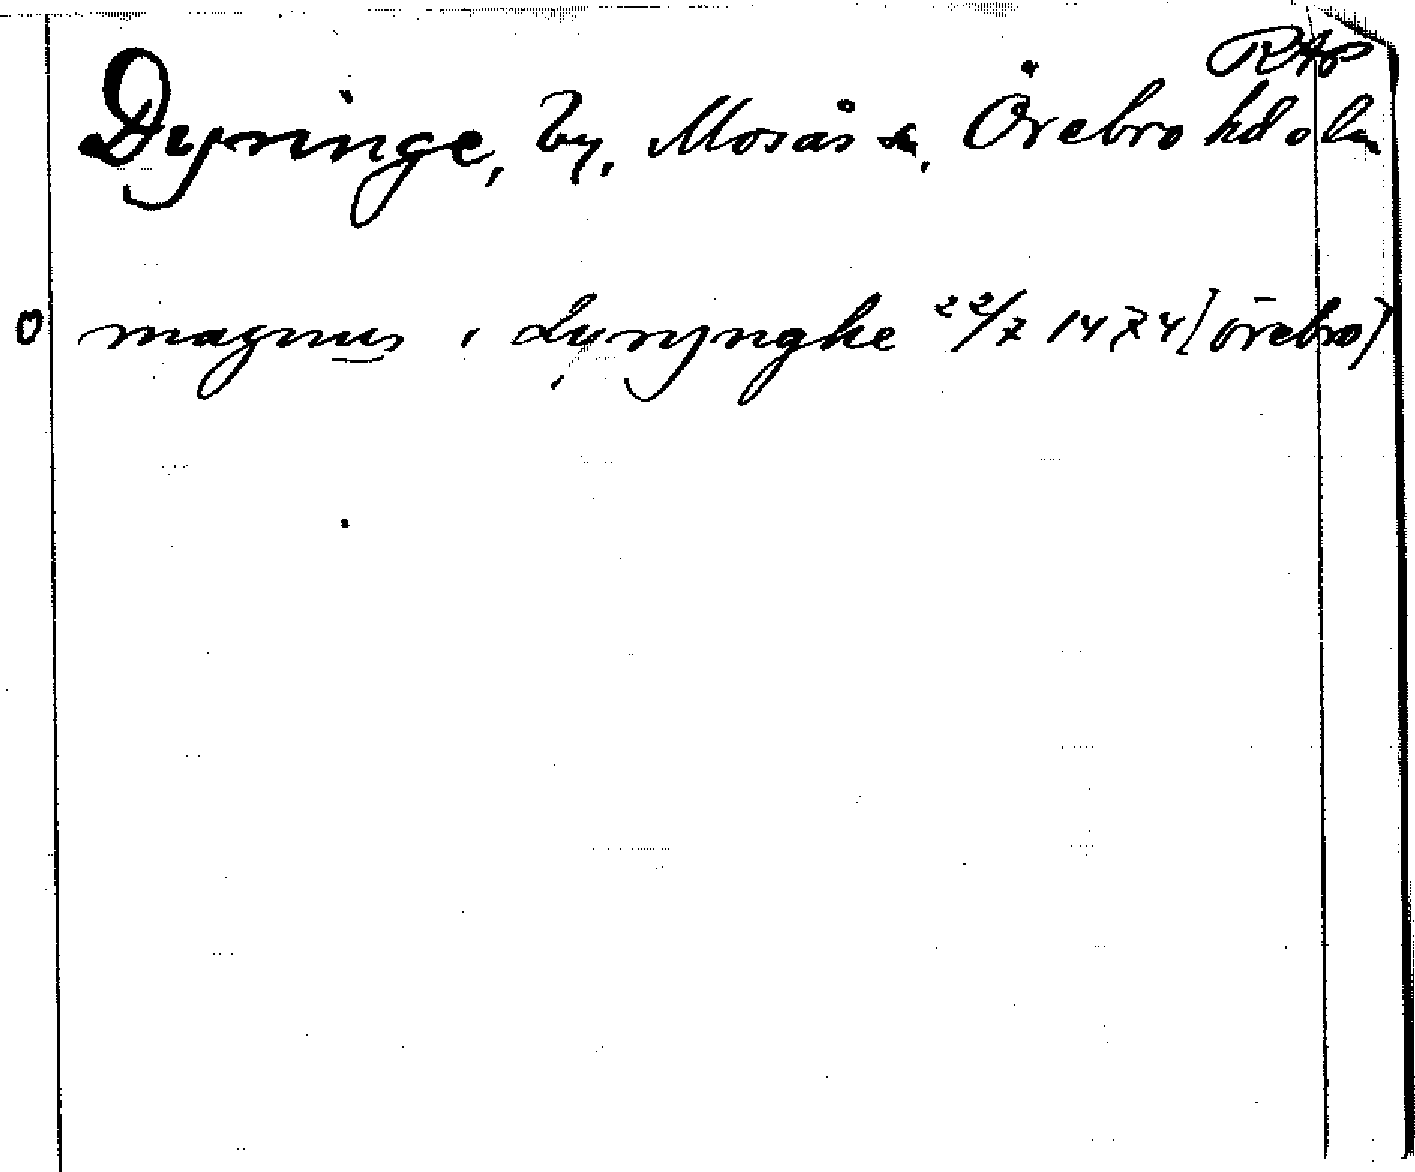 RAp
Dyringe, by, Mosås sn, Örebro hd o ln
O magnus i dyrynghe 22/7 1474 [örebro]